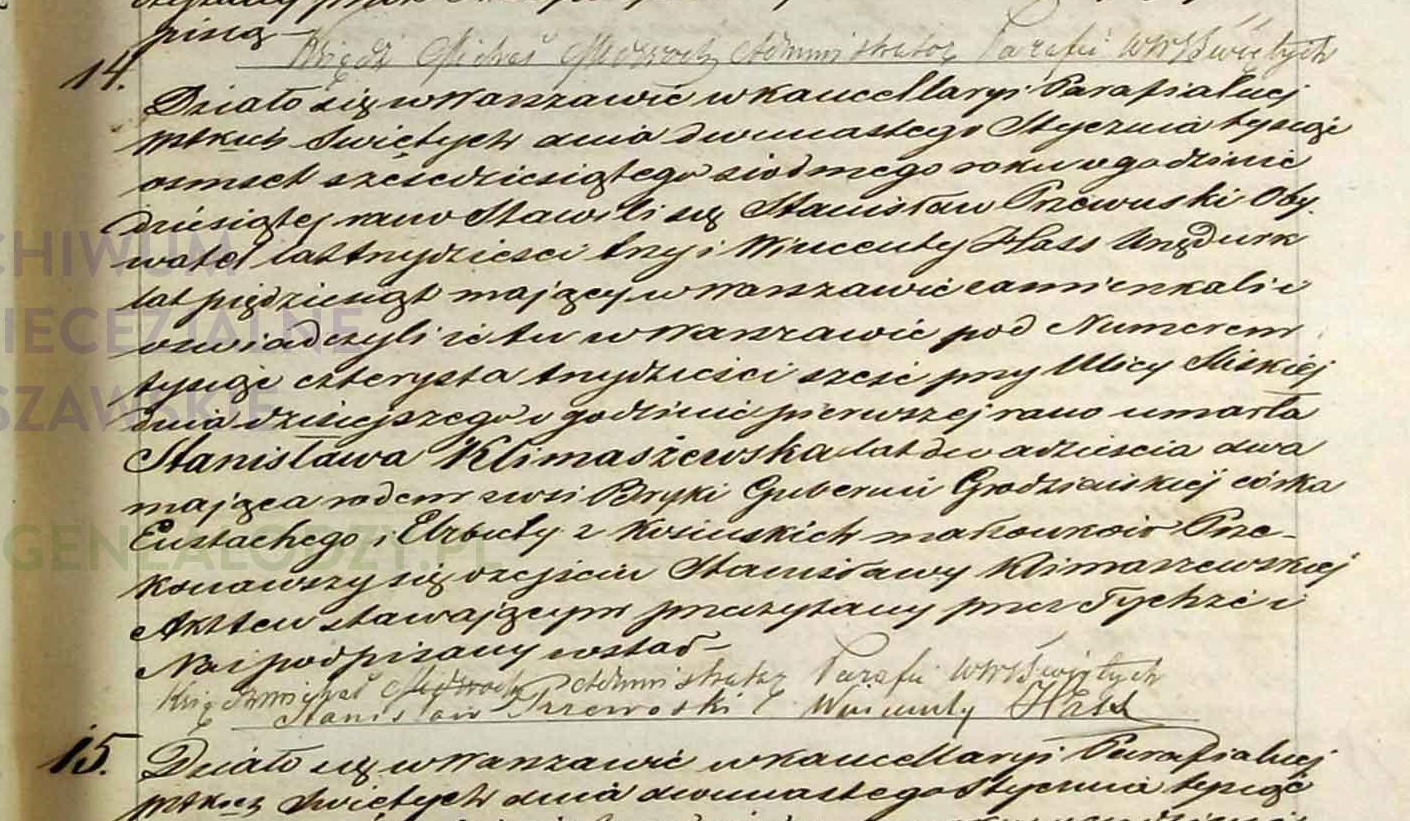 pisą
Ksiądz Michał Administrator Parafii WW Świętych
14.
Działo się w Warszawie w kancellaryi Parafialnej
Wszkich Świętych dnia dwunastego Stycznia tysiąc
osmset sześcdziesiątego siodmego roku o godzinie
dziesiątej rano Stawili się Stanisław Przewuski Oby-
watel lat trzydziesci trzy i Wincenty Hass Urzędnik
lat pięćdziesiąt mający w Warszawie zamieszkali i
oswiadczyli że tu w Warszawie pod Numerem
tysiąc czterysta trzydzieści szesc przy Ulicy Śliskiej
dnia dzisiejszego o godzinie pierwszej rano umarła
Stanisława Klimaszewska lat dwadzieścia dwa
mająca rodem z wsi Bryki Gubernii Grodzieńskiej córka
Eustachego i Elzbiety z Kosinskich małżonków Prze-
konawszy się o zejściu Stanisławy Klimaszewskiej
Akt ten stawającym przeczytany przez Tychże i
Nas podpisany został
Ksiądz Michał Administrator Parafii WW Świętych
Stanisław Przewoski Wincenty Hass
15.
Działo się w Warszawie w kancellaryi Parafialnej
Wszkich Świętych dnia dwunastego Stycznia tysiąc
ARCHIWUM
DIECEZJALNE
WARSZAWSKIE
GENEALODZY.PL